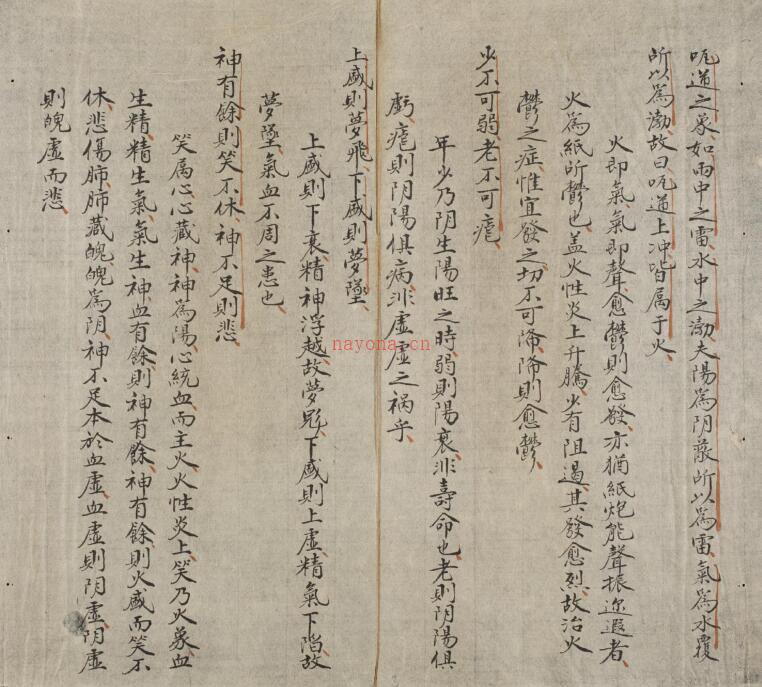 呃逆之象如雨中之雷水中之渤夫陽爲阴蔽所以爲雷氣爲水覆
所以爲渤故曰呃逆上冲皆属于火
火即氣氣即聲愈鬱則愈發亦猶紙炮能聲振迩遐者
火爲紙所鬱也盖火性炎上升騰少有阻遏其發愈烈故治火
鬱之症惟宜發之切不可降降則愈鬱
少不可弱老不可瘧
年少乃阴生陽旺之時弱則陽衰非壽命也老則阴陽俱
虧瘧則阴陽俱病非虚虚之祸乎
上盛則夢飛下盛則夢墜
上盛則下衰精神浮越故夢飛下盛則上虚精氣下陷故
夢墜氣血不周之患也
神有餘則笑不休神不足則悲
笑属心心藏神神爲陽心統血而主火火性炎上笑乃火象血
生精精生氣氣生神血有餘則神有餘神有餘則火盛而笑不
休悲傷肺肺藏魄魄爲阴神不足本於血虚血虚則阴虚阴虚
則魄虚而悲
nayona.cn